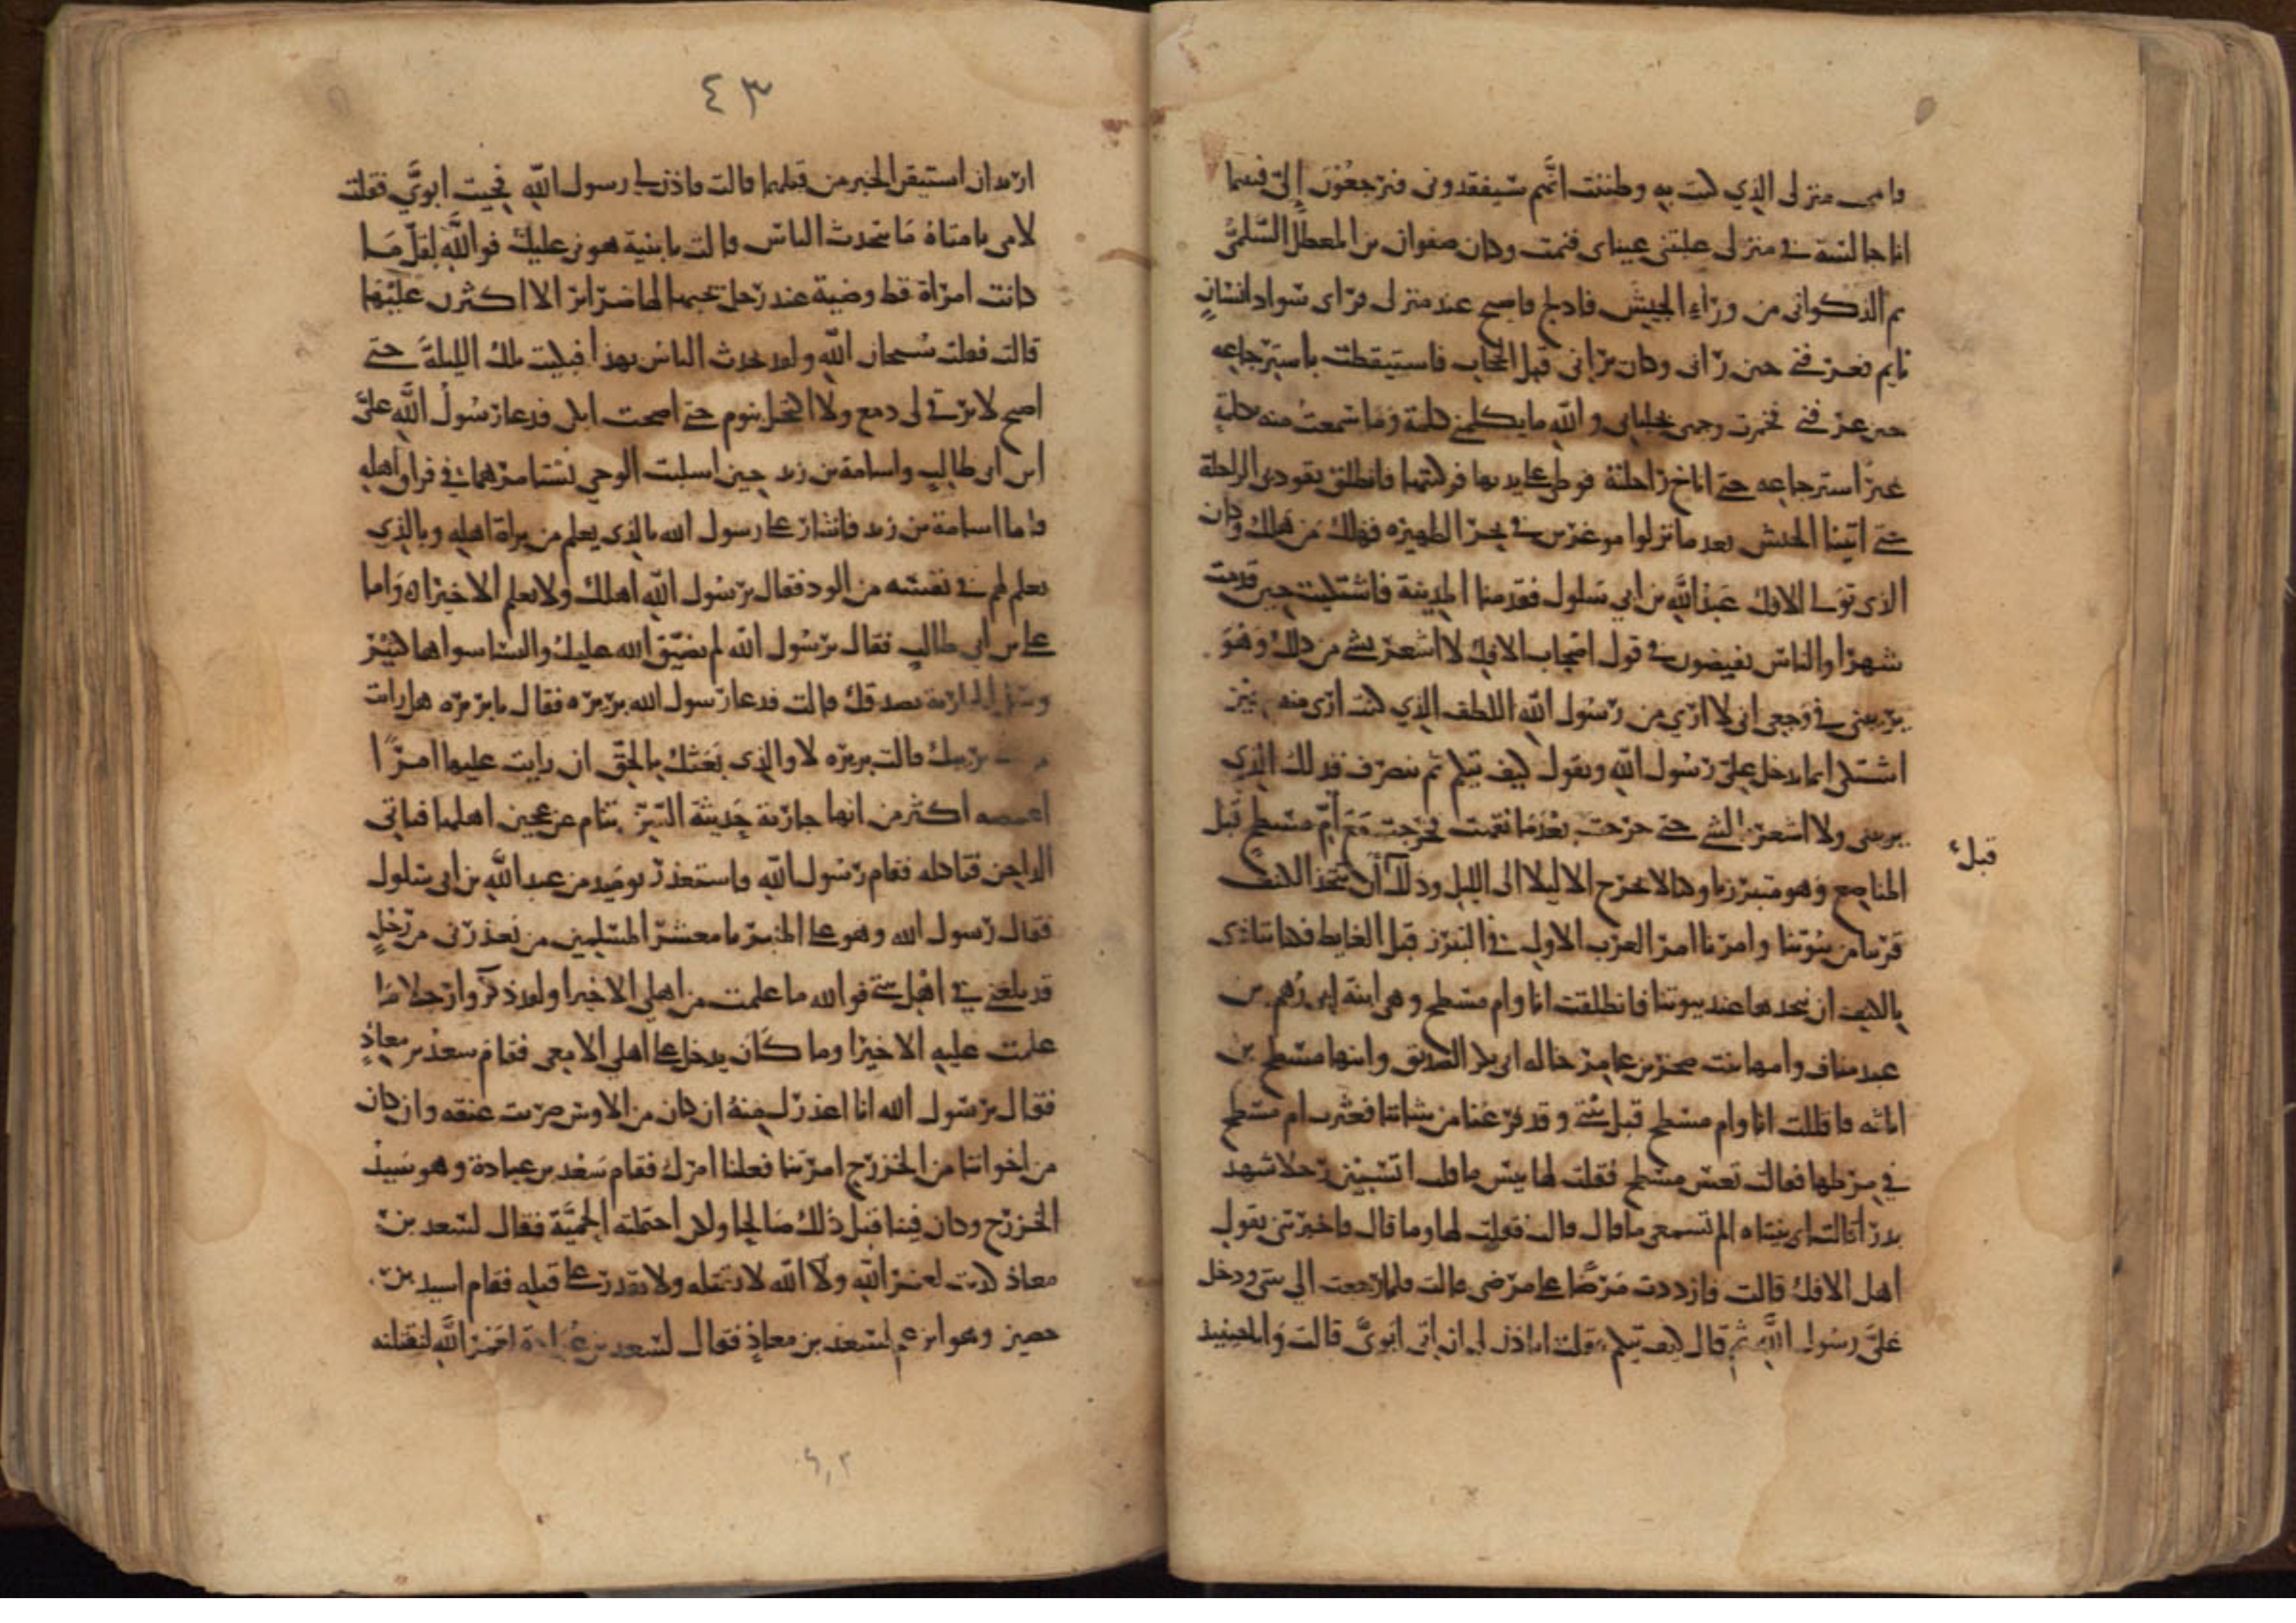 فاممت منزلي الذي كنت به وظننت انهم سيفقدوني فيرجعون إلي فبينما
انا جالسة في منزلي غلبتني عيناي فنمت وكان صفوان بن المعطل السلمي
ثم الذكواني من وراء الجيش فادلج فاصبح عند منزلي فراى سواد انسان
نايم فعرفني حين راني وكان يراني قبل الحجاب فاستيقظت باسترجاعه
حين عرفني فخمرت وجهي بجلبابي و الله ما يكلمني كلمة وما سمعت منه كلمة
غير استرجاعه حتى اناخ راحلته فوطى على يديها فركبتها فانطلق يقود بي الراحلة
حتى اتينا الجيش بعد ما نزلوا موغرين في نحر الظهيره فهلك من هلك وكان
الذي تولى الافك عبد الله بن ابي سلول فقدمنا المدينة فاشتكيت حين قدمت
شهرا والناس يفيضون في قول اصحاب الافك لا اشعر بشي من ذلك وهو
يريبني في وجعي اني لا ارى من رسول الله اللطف الذي كنت ارى منه حين
اشتكي انما يدخل علي رسول الله ويقول كيف تيكم ثم ينصرف فذلك الذي
يريبني ولا اشعر بالشي حتى خرجت بعدما نقهت فخرجت مع أم مسطح قبل
قبل
المناصع وهو متبرزنا وكنا لا نخرج الا ليلا الى الليل وذلك أن نتخذ الكنف
قريبا من بيوتنا وامرنا امر العرب الاول في التبرز قبل الغايط فكنا نتاذى
بالكنف ان نتخذها عند بيوتنا فانطلقت انا وام مسطح وهي ابنة ابي رهم بن
عبد مناف وامها بنت صخر بن عامر خالة ابي بكر الصديق وابنها مسطح بن
اثاثه فاقبلت انا وام مسطح قبل بيتي وقد فرغنا من شاننا فعثرت ام مسطح
في مرطها فقالت تعس مسطح فقلت لها بيس ما قلت اتسبين رجلا شهد
بدرا قالت اى هنتاه الم تسمعي ما قال قالت فقلت لها وما قال فاخبرتني بقول
اهل الافك قالت فازددت مرضا على مرضي قالت فلما رجعت الى بيتي ودخل
علي رسول الله ثم قال كيف تيكم فقلت اتاذن لي ان اتي ابوي قالت وانا حينيذ
٤٣
اريد ان استيقن الخبر من قبلهما قالت فاذن لي رسول الله فجيت ابوي فقلت
لامي يا متاه ما يتحدث الناس قالت يا بنية هوني عليك فوالله لقل ما
كانت امراة قط وضية عند رجل يحبها لها ضراير الا اكثرن عليها
قالت فقلت سبحان الله ولقد تحدث الناس بهذا فبكيت تلك الليلة حتى
اصبح لا يرقى لي دمع ولا اكتحل بنوم حتى اصبحت ابكي فدعا رسول الله علي
ابن ابي طالب واسامة بن زيد حين استلبث الوحي يستامرهما في فراق اهله
فاما اسامة بن زيد فاشار على رسول الله بالذي يعلم من براة اهله وبالذي
يعلم لهم في نفسه من الود فقال يرسول الله اهلك ولا نعلم الا خيرا واما
علي بن ابي طالب فقال يرسول الله لم يضيق الله عليك والنسا سواها كثير
وسل الجارية تصدقك قالت فدعا رسول الله بريره فقال يا بريره هل رايت
يريبك قالت بريره لا والذي بعثك بالحق ان رايت عليها امرا
اغمصه اكثر من انها جارية حديثة السن تنام عن عجين اهلها فياتي
الداجن فتاكله فقام رسول الله فاستعذر يوميذ من عبد الله بن ابي سلول
فقال رسول الله وهو على المنبر يا معشر المسلمين من يعذرني من رجل
قد بلغني في اهل بيتي فوالله ما علمت من اهلي الا خيرا ولقد ذكروا رجلا ما
علمت عليه الا خيرا وما كان يدخل على اهلي الا معي فقام سعد بن معاذ
فقال يرسول الله انا اعذرك منه ان كان من الاوس ضربت عنقه وان كان
من اخواننا من الخزرج امرتنا فعلنا امرك فقام سعد بن عبادة وهو سيد
الخزرج وكان فينا قبل ذلك صالحا ولكن احتملته الحمية فقال لسعد بن
معاذ كذبت لعمر الله ولا الله لا تقتله ولا تقدر على قتله فقام اسيد بن
حصين وهو ابن عم لسعد بن معاذ فقال لسعد بن عبادة لعمر الله لنقتلنه